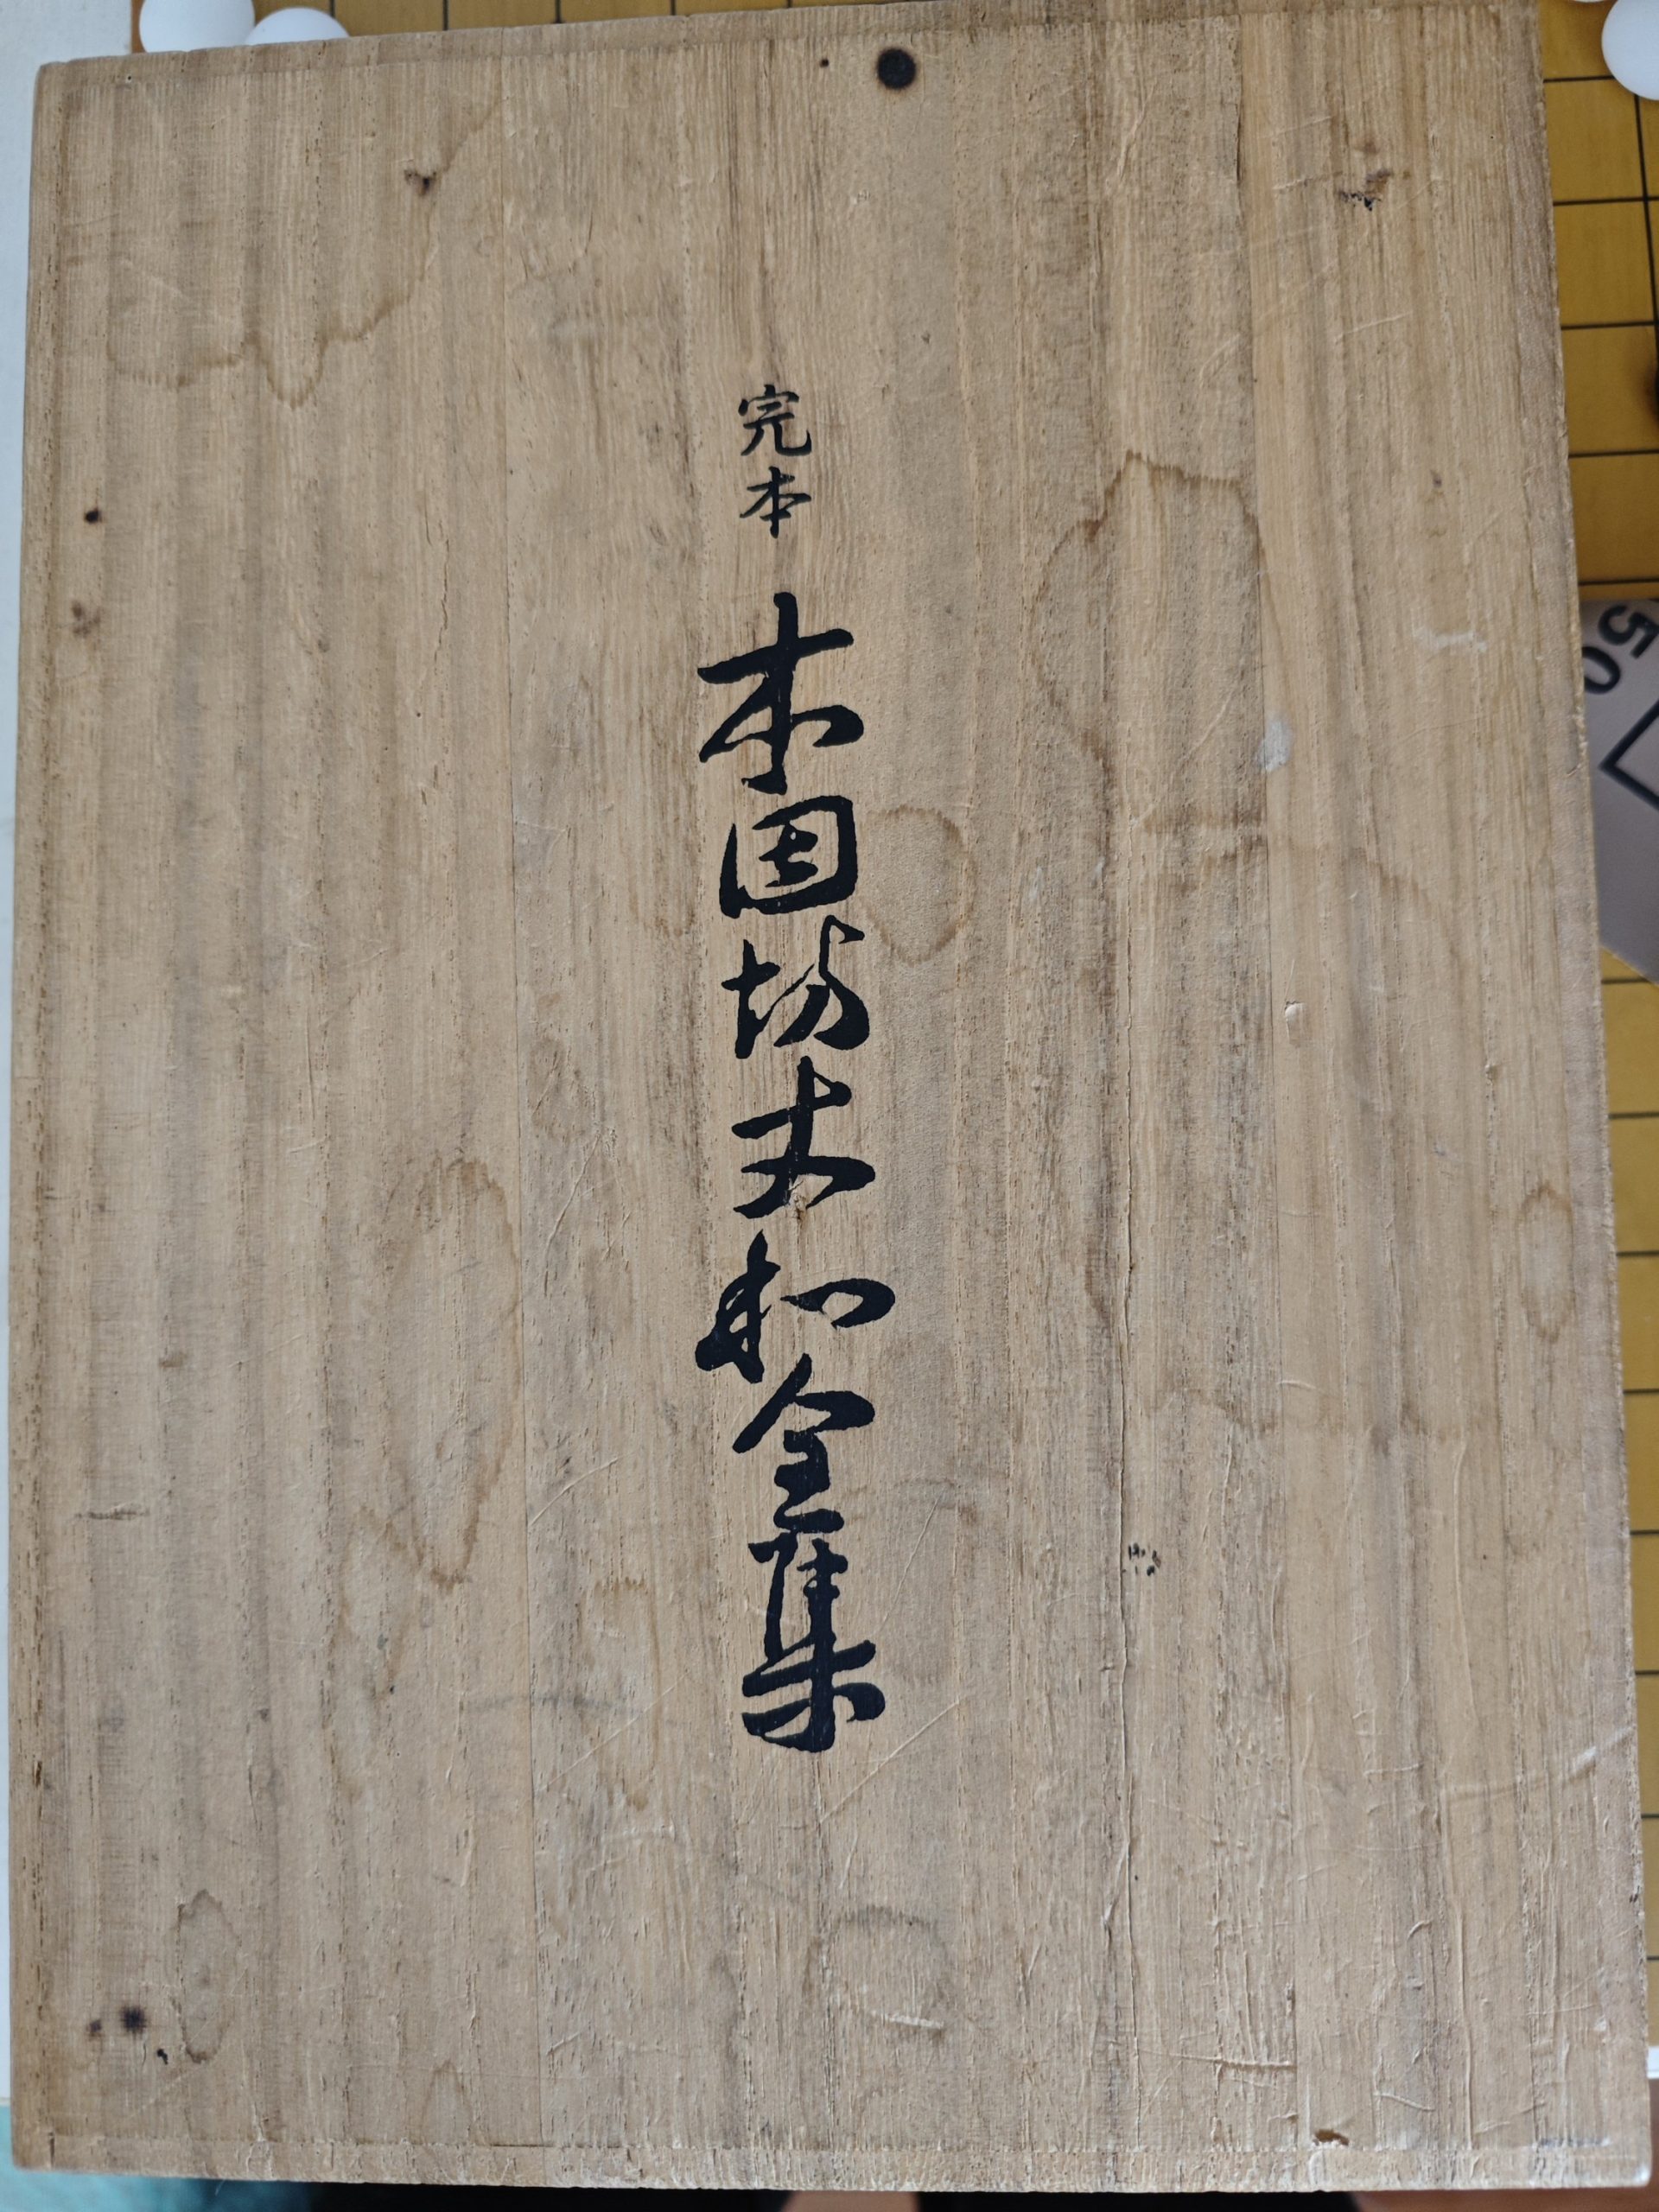 完本
本因坊丈和全集
50